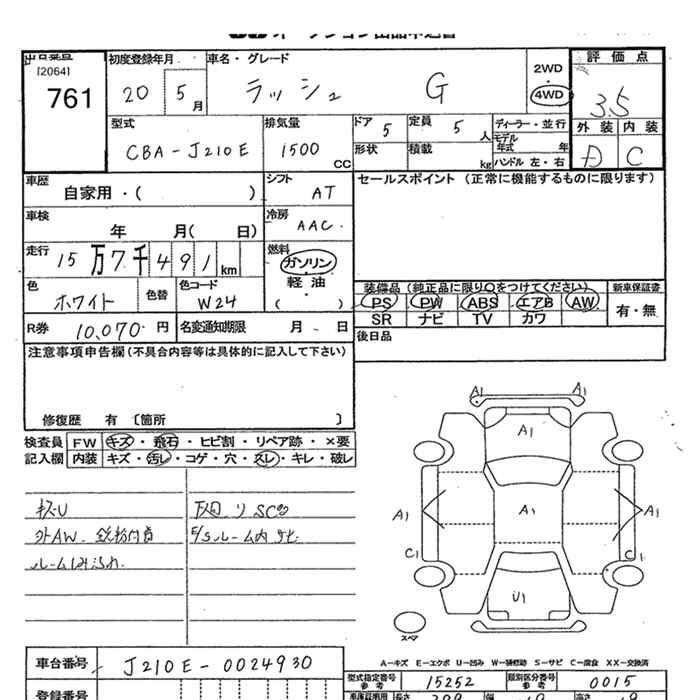 出品番号 初度登録年月 車名・グレード 評価点
[2064]
761 20 5月 ラッシュ G 2WD 4WD 3.5
型式 排気量 ドア 5 定員 5人 ディーラー・並行 外装 内装
CBA-J210E 1500 CC 形状 積載 kg モデル年式 年 ハンドル 左・右 D C
車歴 自家用・( ) シフト AT セールスポイント (正常に機能するものに限ります)
車検 年 月( 日) 冷房 AAC
走行 15万7千491km 燃料 ガソリン
軽油
( )
色 ホワイト 色替 色コード W24 装備品 (純正品に限り○をつけてください) 新車保証書
PS PW ABS エアB AW 有・無
SR ナビ TV カワ
R券 10,070円 名変通知期限 月 日 後日品
注意事項申告欄(不具合内容等は具体的に記入して下さい)
修復歴 有 〔箇所 〕
検査員 FW キズ・飛石・ヒビ割・リペア跡・×要
記入欄 内装 キズ・汚レ・コゲ・穴・スレ・キレ・破レ
キズU
外AW 鉄粉付着
ルームしみよごれ
下回り SC
F/Sルーム内サビ
A1 A1
A1
A1 A1 A1
C1 C1
U1
スペア
A-キズ E-エクボ U-凹み W-補修跡 S-サビ C-腐食 XX-交換済
車台番号 J210E-0024930
型式指定番号 参考 15252 類別区分番号 参考 0015
登録番号 車庫証明用 長さ 幅 高さ